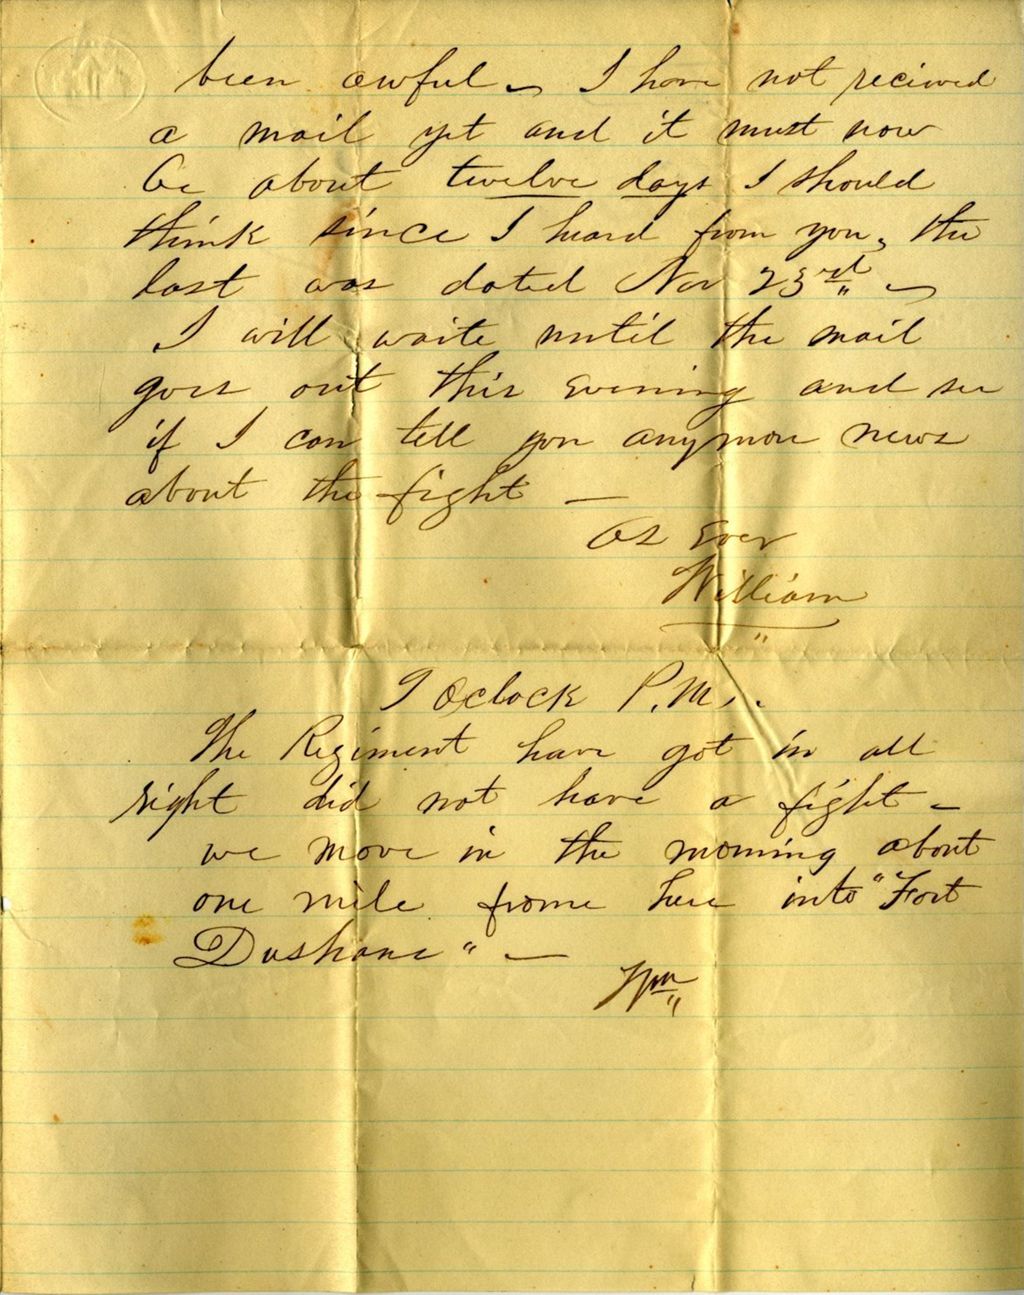 been awful — I have not recieved
a mail yet and it must now
be about twelve days I should
think since I heard from you, the
last was dated Nov 23rd —
I will waite until the mail
goes out this Evening and see
if I can tell you anymore news
about the fight —
As Ever
William
"
Oclock P.M.
The Regiment have got in all
right did not have a fight —
we move in the morning about
one mile frome here into "Fort
Dushane" —
Wm
"